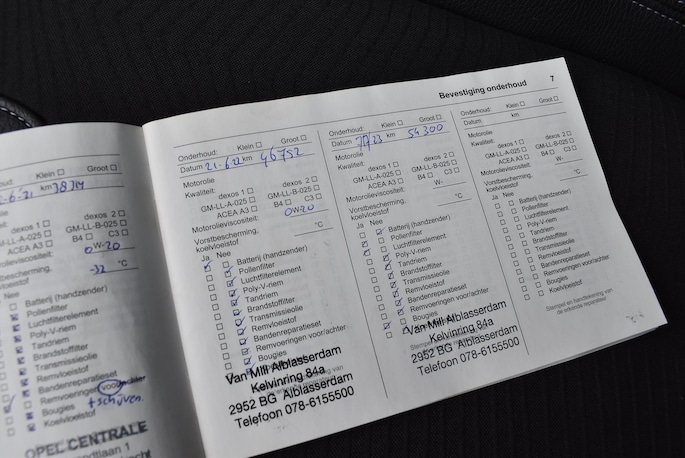 -6-'21 km
dexos 1 ☐ dexos 2 ☐
-LL-A-025 ☐ GM-LL-B-025 ☐
ACEA A3 ☐ B4 ☐ C3 ☐
oviscositeit: 0W-20
bescherming,
eistof -32 °C
Nee
Batterij (handzender)
Pollenfilter
Luchtfilterelement
Poly-V-riem
Tandriem
Brandstoffilter
Transmissieolie
Remvloeistof
Bandenreparatieset
Remvoeringen voor/achter
Bougies + schijven.
Koelvloeistof
OPEL CENTRALE
Bevestiging onderhoud 7
Onderhoud: Klein ☐ Groot ☐
Datum 21-6-22 km 46752
Motorolie
Kwaliteit:
dexos 1 ☐ dexos 2 ☐
GM-LL-A-025 ☐ GM-LL-B-025 ☐
ACEA A3 ☐ B4 ☐ C3 ☐
Motorolieviscositeit: 0W-20
Vorstbescherming,
koelvloeistof °C
Ja Nee
Batterij (handzender)
Pollenfilter
Luchtfilterelement
Poly-V-riem
Tandriem
Brandstoffilter
Transmissieolie
Remvloeistof
Bandenreparatieset
Remvoeringen voor/achter
Bougies
Van Mill Alblasserdam
Kelvinring 84a
2952 BG Alblasserdam
Telefoon 078-6155500
Onderhoud: Klein ☐ Groot ☐
Datum km 54300
Motorolie
Kwaliteit:
dexos 1 ☐ dexos 2 ☐
GM-LL-A-025 ☐ GM-LL-B-025 ☐
ACEA A3 ☐ B4 ☐ C3 ☐
Motorolieviscositeit: W-
Vorstbescherming,
koelvloeistof °C
Ja Nee
Batterij (handzender)
Pollenfilter
Luchtfilterelement
Poly-V-riem
Tandriem
Brandstoffilter
Transmissieolie
Remvloeistof
Bandenreparatieset
Remvoeringen voor/achter
Bougies
Van Mill Alblasserdam
Kelvinring 84a
2952 BG Alblasserdam
Telefoon 078-6155500
Onderhoud: Klein ☐ Groot ☐
Datum km
Motorolie
Kwaliteit:
dexos 1 ☐ dexos 2 ☐
GM-LL-A-025 ☐ GM-LL-B-025 ☐
ACEA A3 ☐ B4 ☐ C3 ☐
Motorolieviscositeit: W-
Vorstbescherming,
koelvloeistof °C
Ja Nee
Batterij (handzender)
Pollenfilter
Luchtfilterelement
Poly-V-riem
Tandriem
Brandstoffilter
Transmissieolie
Remvloeistof
Bandenreparatieset
Remvoeringen voor/achter
Bougies
Koelvloeistof
Stempel en handtekening van
de erkende reparateur